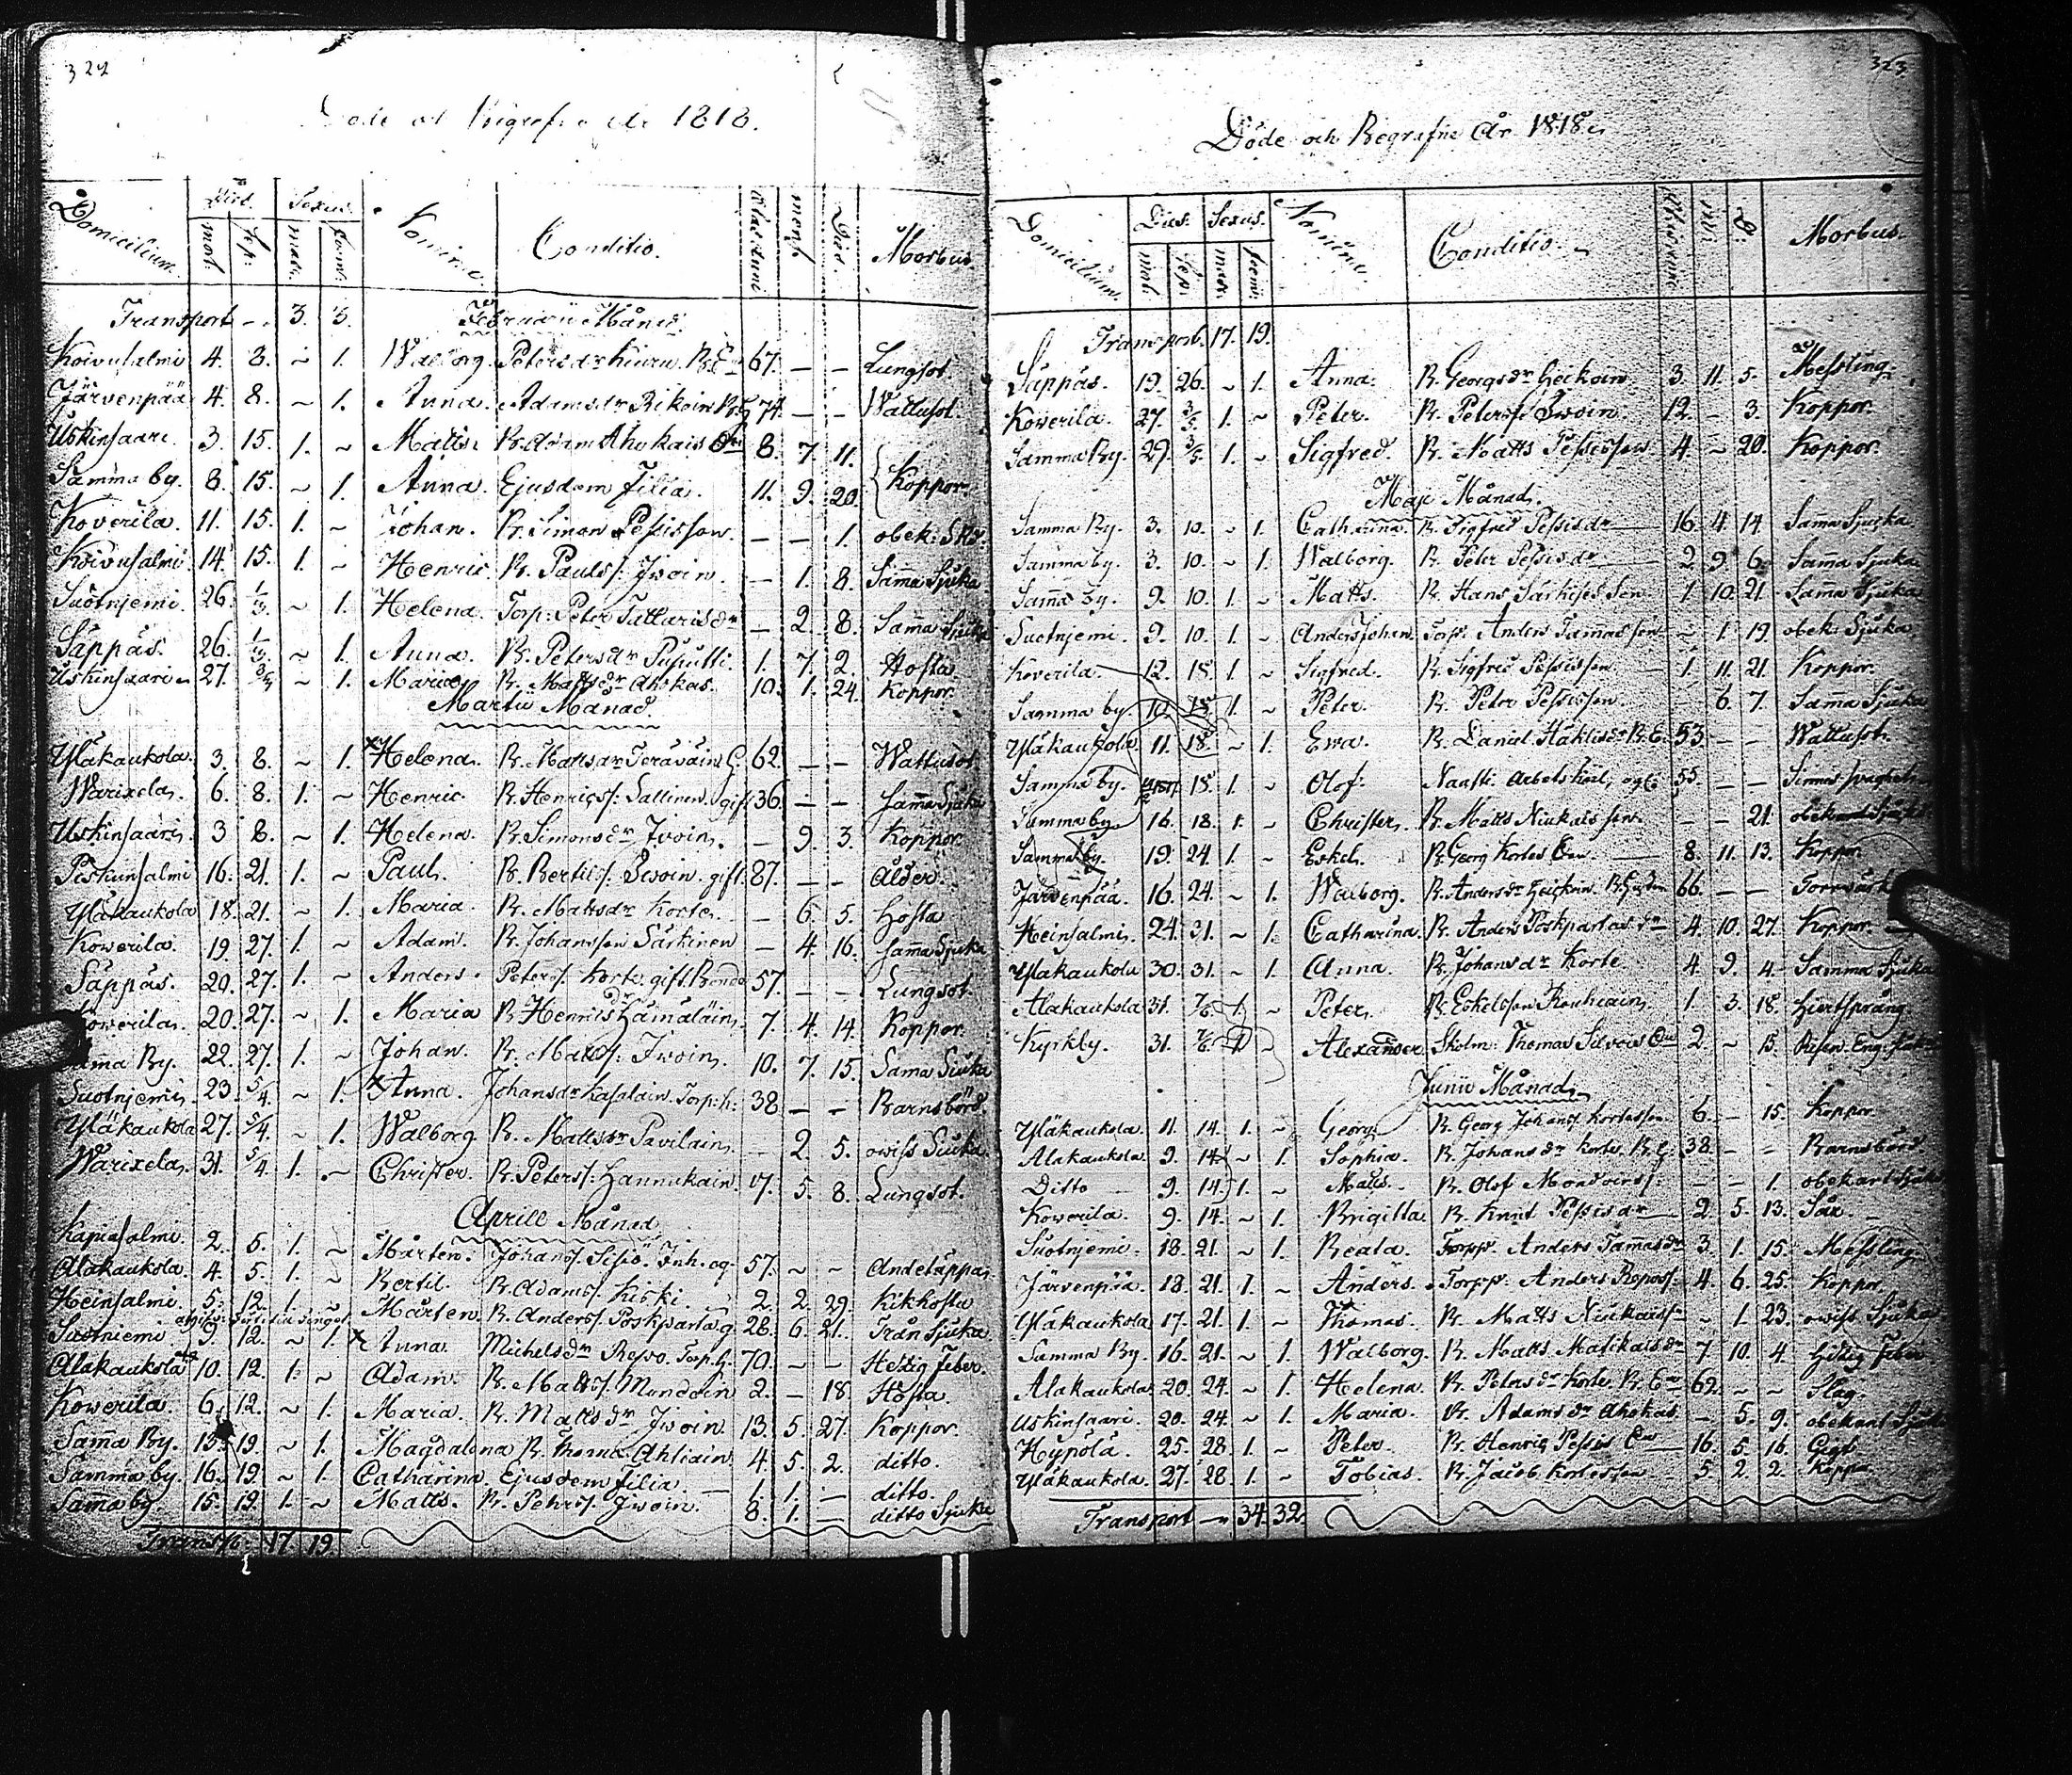 322
Döde och Begrafne År 1818.
Domicilium. Died. Sexus. Nomina. Conditio. Morbus.
mort: Sep: masc: foem:
Transport 3. 3. Februarii Månad.
Koivusalmi 4. 8. ~ 1. Walborg. Petersdr Kiuru. 67. — — Lungsot.
Järvenpää 4. 8. ~ 1. Anna. Adamsdr Rikoin 74. — — Wattusot.
Uskinsaari. 3. 15. 1. ~ Matts. B. Adam Ahokais 8. 7. 11.
Samma by. 8. 15. ~ 1. Anna. Ejusdem filia. 11. 9. 20. Koppor.
Koverila. 11. 15. 1. ~ Johan. B. Simon Pessisson. — — 1. obek:
Koivusalmi 14. 15. 1. ~ Henric. B. Pauls s. Iwoin. — 1. 8. Sama Sjuka
Suotniemi. 26. 1/3. ~ 1. Helena. Torp: Peter Tattarisdr — 2. 8. Sama Sjuka
Säppäs. 26. 1/3. ~ 1. Anna. B. Petersdr Puputti. 1. 7. 2. Hosta.
Uskinsaari 27. ~ 1. Maria B. Mattsdr Ahokas. 10. 1. 24. Koppor.
Martii Månad.
Yläkaukola. 3. 8. ~ 1. Helena. B. Mattsdr Teräväin 62. — — Wattusot
Warixela. 6. 8. 1. ~ Henric B. Henrics s. Lallinen gift 36. — — Sama Sjuka
Uskinsaari. 3 8. ~ 1. Helena. B. Simonsdr Iwoin. — 9. 3. Koppor.
Peskuinsalmi 16. 21. 1. ~ Paul. B. Bertils s. Iwoin. gift. 87. — — ålder.
Yläkaukola 18. 21. ~ 1. Maria. B. Mattsdr Korte. — 6. 5. Hosta
Kowerila. 19. 27. 1. ~ Adam. B. Johansson Särkinen — 4. 16. Sama Sjuka
Säppäs. 20. 27. 1. ~ Anders. Peters s. Korte gift. Bonde 57. — — Lungsot.
Kowerila. 20. 27. ~ 1. Maria B. Henrics Hämäläin. 7. 4. 14. Koppor.
Sama By. 22. 27. 1. ~ Johan. B. Matts s. Iwoin. 10. 7. 15. Sama Sjuka
Suotniemi 23. 5/4. ~ 1. Anna. Johansdr Kasalain. Torp: h: 38 — — Barnsbörd.
Yläkaukola 27. 5/4. ~ 1. Walborg. B. Mattsdr Pavilain — 2. 5. owiss Siuka.
Warixela. 31. 5/4. 1. ~ Christer. B. Peters s. Hannukain. 7. 5. 8. Lungsot.
Aprill Månad
Kapiasalmi. 2. 5. 1. ~ Mårten. Johans s. Inh. 57. ~ ~ Andetäppa
Alakaukola. 4. 5. 1. ~ Bertil. B. Adams s. Kiski 2. 2. 29. Kikhosta
Heinsalmi. 5. 12. 1. ~ Mårten. B. Anders s. Poskparta g. 28. 6. 21. Trån Sjuka.
Suotniemi 9. 12. ~ 1. Anna. Michelsdr Repo. Torp. 70. — — Hetzig feber.
Alakaukola 10. 12. 1. ~ Adam. B. Matts s. Mondoin 2. — 18. Hosta.
Kowerila. 6. 12. ~ 1. Maria. B. Mattsdr Iwoin. 13. 5. 27. Koppor.
Sama By. 13. 19. ~ 1. Magdalena B. Thomas Ahtiain 4. 5. 2. ditto.
Samma by. 16. 19. ~ 1. Catharina Ejusdem filia. — 1. 1. — ditto.
Sama by. 15. 19. 1. ~ Matts. B. Pehrs s. Iwoin. 8. 1. — ditto Sjuka
Transp: 17. 19.
323
Döde och Begrafne År 1818.
Domicilium. Dies. Sexus. Nomina. Conditio. Morbus.
mort: Sep: masc: foem:
Transport. 17. 19.
Säppäs. 19. 26. ~ 1. Anna. B. Georgsdr Heikoin 3. 11. 5. Messling.
Kowerila. 27. 3/5 1. ~ Peter. B. Peters s. Iwoin. 12. — 3. Koppor.
Samma By. 29. 3/5 1. ~ Sigfred. B. Matts Pessisson. 4. ~ 20. Koppor.
Maji Månad.
Samma By. 3. 10. ~ 1. Catharina. B. Sigfred Pessisdr 16. 4. 14. Sama Sjuka
Samma by. 3. 10. ~ 1. Walborg. B. Peter Pessisdr 2. 9. 6. Sama Sjuka
Sama by. 9. 10. 1. ~ Matts. B. Hans Särkises Son 1. 10. 21. Sama Sjuka
Suotniemi. 9. 10. 1. ~ Anders Johan. Torp. Anders Tammas son ~ 1. 19 obek: Sjuka
Koverila. 12. 18. 1. ~ Sigfred. B. Sigfred Pessisson 1. 11. 21. Koppor.
Samma by. 10. 18. 1. ~ Peter. B. Peter Pessisson 6. 7. Sama Sjuka
Yläkaukola 11. 18. ~ 1. Ewa. B. Daniel Häklisdr B. E. 53. — — Wattusot.
Samma by. 18. 1. ~ Olof. Naatti Arbets karl, 55. — —
Samma by 16. 18. 1. ~ Christer. B. Matts Niukais son. — — 21. obekand Sjuka
Samma by. 19. 24. 1. ~ Eskel. B. Georg Kortes 8. 11. 13. Koppor
Järvenpää. 16. 24. ~ 1. Walborg. B. Andersdr Heickoin. 66. — — Torrvärk
Heinsalmi. 24. 31. ~ 1. Catharina. B. Anders Poskpartas dr 4. 10. 27. Koppor.
Yläkaukola 30. 31. ~ 1. Anna. B. Johansdr Korte. 4. 9. 4. Samma Sjuka
Alakaukola 31. 7/6. 1. ~ Peter. B. Eskelsson Rouhiain. 1. 3. 18. Hiertsprång
Kyrkby. 31. 7/6. 1. ~ Alexander. Skolm: Thomas 2. ~ 15.
Junii Månad.
Yläkaukola. 11. 14. 1. ~ Georg. B. Georg Johans s. Kortesson 6. — 15. Koppor.
Alakaukola. 9. 14. ~ 1. Sophia. B. Johansdr Korte. 38. — — Barnsbörd
Ditto 9. 14. 1. ~ Matts. B. Olof Mondoins s. — — 1. obekant Sjuka
Kowerila. 9. 14. ~ 1. Brigitta. B. Knut Pessisdr 2. 5. 13.
Suotniemi. 18. 21. ~ 1. Beata. Torpp. Anders Tamasdr 3. 1. 15. Messling
Järvenpää 18. 21. 1. ~ Anders. Torpp. Anders Repos s. 4. 6. 25. Koppor
Yläkaukola 17. 21. 1. ~ Thomas. B. Matts Niukais s. ~ 1. 23. owiss Sjuka
Samma By. 16. 21. ~ 1. Walborg. B. Matts Matikais dr 7. 10. 4. Hitzig Feber
Alakaukola 20. 24. ~ 1. Helena. B. Petersdr Korte. 62. ~ ~ Slag.
Uskinsaari. 20. 24. ~ 1. Maria. B. Adamsdr Ahokas. — 5. 9. obekant Sjuk
Hypölä. 25. 28. 1. ~ Peter. B. Henric Pessis 16. 5. 16. Gigt
Yläkaukola. 27. 28. 1. ~ Tobias. B. Jacob Kortesson 5. 2. 2. Koppor
Transport 34. 32.